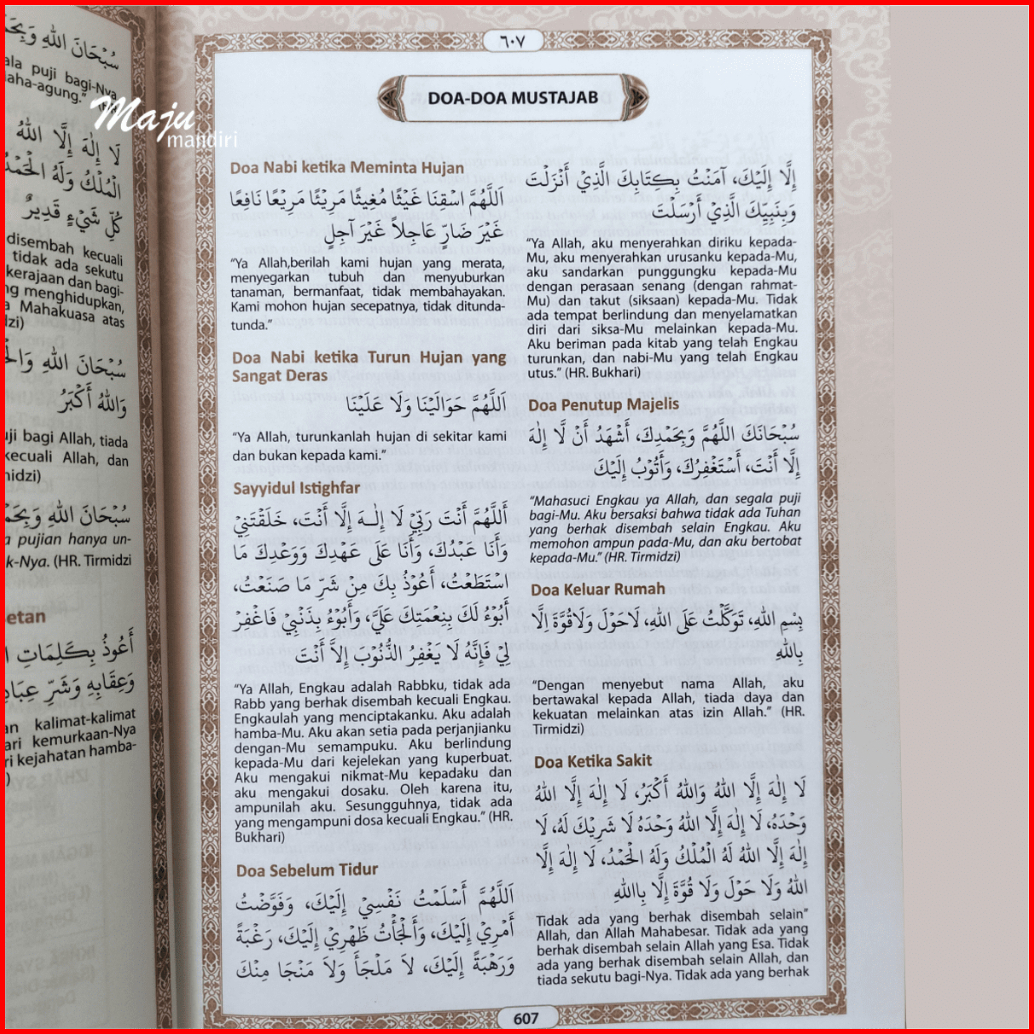 سُبْحَانَ اللهِ وَبِحَمْ
ala puji bagi-Nya
aha-agung."
لَا إِلٰهَ إِلَّا اللهُ
الْمُلْكُ وَلَهُ الْحَمْدُ
كُلِّ شَيْءٍ قَدِيرٌ
disembah kecuali
tidak ada sekutu
kerajaan dan bagi-
ng menghidupkan,
a Mahakuasa atas
dzi)
سُبْحَانَ اللهِ وَالْحَ
وَاللهُ أَكْبَرُ
uji bagi Allah, tiada
kecuali Allah, dan
midzi)
سُبْحَانَ اللهِ وَبِحَمْ
a pujian hanya un-
k-Nya. (HR. Tirmidzi
etan
أَعُوذُ بِكَلِمَاتِ ا
وَعِقَابِهِ وَشَرِّ عِبَادِ
an kalimat-kalimat
ari kemurkaan-Nya
ri kejahatan hamba-
Maju
mandiri
٦٠٧
DOA-DOA MUSTAJAB
Doa Nabi ketika Meminta Hujan
اَللّٰهُمَّ اسْقِنَا غَيْثًا مُغِيثًا مَرِيْئًا مَرِيْعًا نَافِعًا
غَيْرَ ضَارٍّ عَاجِلاً غَيْرَ آجِلٍ
"Ya Allah,berilah kami hujan yang merata,
menyegarkan tubuh dan menyuburkan
tanaman, bermanfaat, tidak membahayakan.
Kami mohon hujan secepatnya, tidak ditunda-
tunda."
Doa Nabi ketika Turun Hujan yang
Sangat Deras
اَللّٰهُمَّ حَوَالَيْنَا وَلَا عَلَيْنَا
"Ya Allah, turunkanlah hujan di sekitar kami
dan bukan kepada kami."
Sayyidul Istighfar
أَللّٰهُمَّ أَنْتَ رَبِّيْ لَا إِلٰهَ إِلَّا أَنْتَ، خَلَقْتَنِيْ
وَأَنَا عَبْدُكَ، وَأَنَا عَلَى عَهْدِكَ وَوَعْدِكَ مَا
اسْتَطَعْتُ، أَعُوْذُ بِكَ مِنْ شَرِّ مَا صَنَعْتُ،
أَبُوْءُ لَكَ بِنِعْمَتِكَ عَلَيَّ، وَأَبُوْءُ بِذَنْبِيْ فَاغْفِرْ
لِيْ فَإِنَّهُ لَا يَغْفِرُ الذُّنُوْبَ إِلاَّ أَنْتَ
"Ya Allah, Engkau adalah Rabbku, tidak ada
Rabb yang berhak disembah kecuali Engkau.
Engkaulah yang menciptakanku. Aku adalah
hamba-Mu. Aku akan setia pada perjanjianku
dengan-Mu semampuku. Aku berlindung
kepada-Mu dari kejelekan yang kuperbuat.
Aku mengakui nikmat-Mu kepadaku dan
aku mengakui dosaku. Oleh karena itu,
ampunilah aku. Sesungguhnya, tidak ada
yang mengampuni dosa kecuali Engkau." (HR.
Bukhari)
Doa Sebelum Tidur
اَللّٰهُمَّ أَسْلَمْتُ نَفْسِيْ إِلَيْكَ، وَفَوَّضْتُ
أَمْرِيْ إِلَيْكَ، وَأَلْجَأْتُ ظَهْرِيْ إِلَيْكَ، رَغْبَةً
وَرَهْبَةً إِلَيْكَ، لاَ مَلْجَأَ وَلاَ مَنْجَا مِنْكَ
إِلَّا إِلَيْكَ، آمَنْتُ بِكِتَابِكَ الَّذِيْ أَنْزَلْتَ
وَبِنَبِيِّكَ الَّذِيْ أَرْسَلْتَ
"Ya Allah, aku menyerahkan diriku kepada-
Mu, aku menyerahkan urusanku kepada-Mu,
aku sandarkan punggungku kepada-Mu
dengan perasaan senang (dengan rahmat-
Mu) dan takut (siksaan) kepada-Mu. Tidak
ada tempat berlindung dan menyelamatkan
diri dari siksa-Mu melainkan kepada-Mu.
Aku beriman pada kitab yang telah Engkau
turunkan, dan nabi-Mu yang telah Engkau
utus." (HR. Bukhari)
Doa Penutup Majelis
سُبْحَانَكَ اللّٰهُمَّ وَبِحَمْدِكَ، أَشْهَدُ أَنْ لَّا إِلٰهَ
إِلَّا أَنْتَ، أَسْتَغْفِرُكَ، وَأَتُوْبُ إِلَيْكَ
"Mahasuci Engkau ya Allah, dan segala puji
bagi-Mu. Aku bersaksi bahwa tidak ada Tuhan
yang berhak disembah selain Engkau. Aku
memohon ampun pada-Mu, dan aku bertobat
kepada-Mu." (HR. Tirmidzi)
Doa Keluar Rumah
بِسْمِ اللهِ، تَوَكَّلْتُ عَلَى اللهِ، لَاحَوْلَ وَلَاقُوَّةَ إِلَّا
بِاللهِ
"Dengan menyebut nama Allah, aku
bertawakal kepada Allah, tiada daya dan
kekuatan melainkan atas izin Allah." (HR.
Tirmidzi)
Doa Ketika Sakit
لَا إِلٰهَ إِلَّا اللهُ وَاللهُ أَكْبَرُ، لَا إِلٰهَ إِلَّا اللهُ
وَحْدَهُ، لَا إِلٰهَ إِلَّا اللهُ وَحْدَهُ لَا شَرِيْكَ لَهُ، لَا
إِلٰهَ إِلَّا اللهُ لَهُ الْمُلْكُ وَلَهُ الْحَمْدُ، لَا إِلٰهَ إِلَّا
اللهُ وَلَا حَوْلَ وَلَا قُوَّةَ إِلَّا بِااللهِ
Tidak ada yang berhak disembah selain"
Allah, dan Allah Mahabesar. Tidak ada yang
berhak disembah selain Allah yang Esa. Tidak
ada yang berhak disembah selain Allah, dan
tiada sekutu bagi-Nya. Tidak ada yang berhak
607